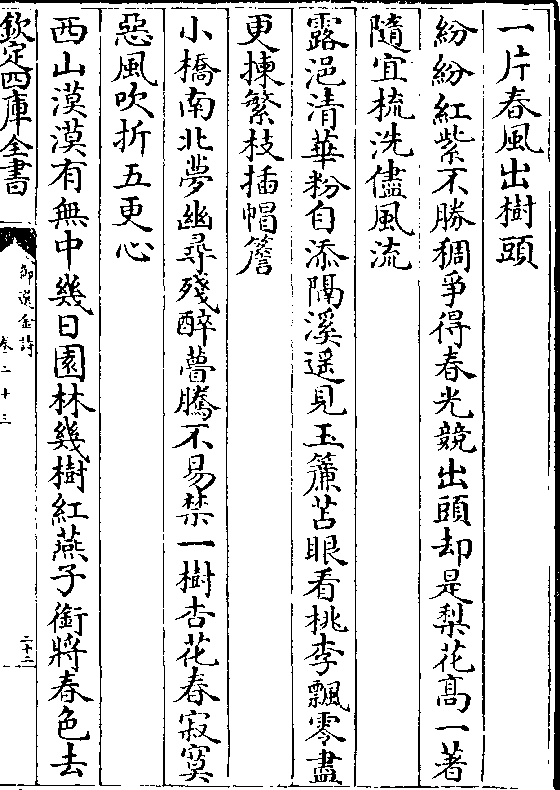 一片春風出樹頭
紛紛紅紫不勝稠爭得春光競出頭却是梨花髙一著
隨宜梳洗儘風流
露浥清華粉自添隔溪遥見玉簾苫眼看桃李飄零盡
更揀繁枝插帽簷
小橋南北夢幽尋殘醉瞢騰不易禁一樹杏花春寂寞
惡風吹折五更心
西山漠漠有無中幾日園林幾樹紅燕子銜將春色去
欽定四庫全書
御選金詩
卷二十三
二十二